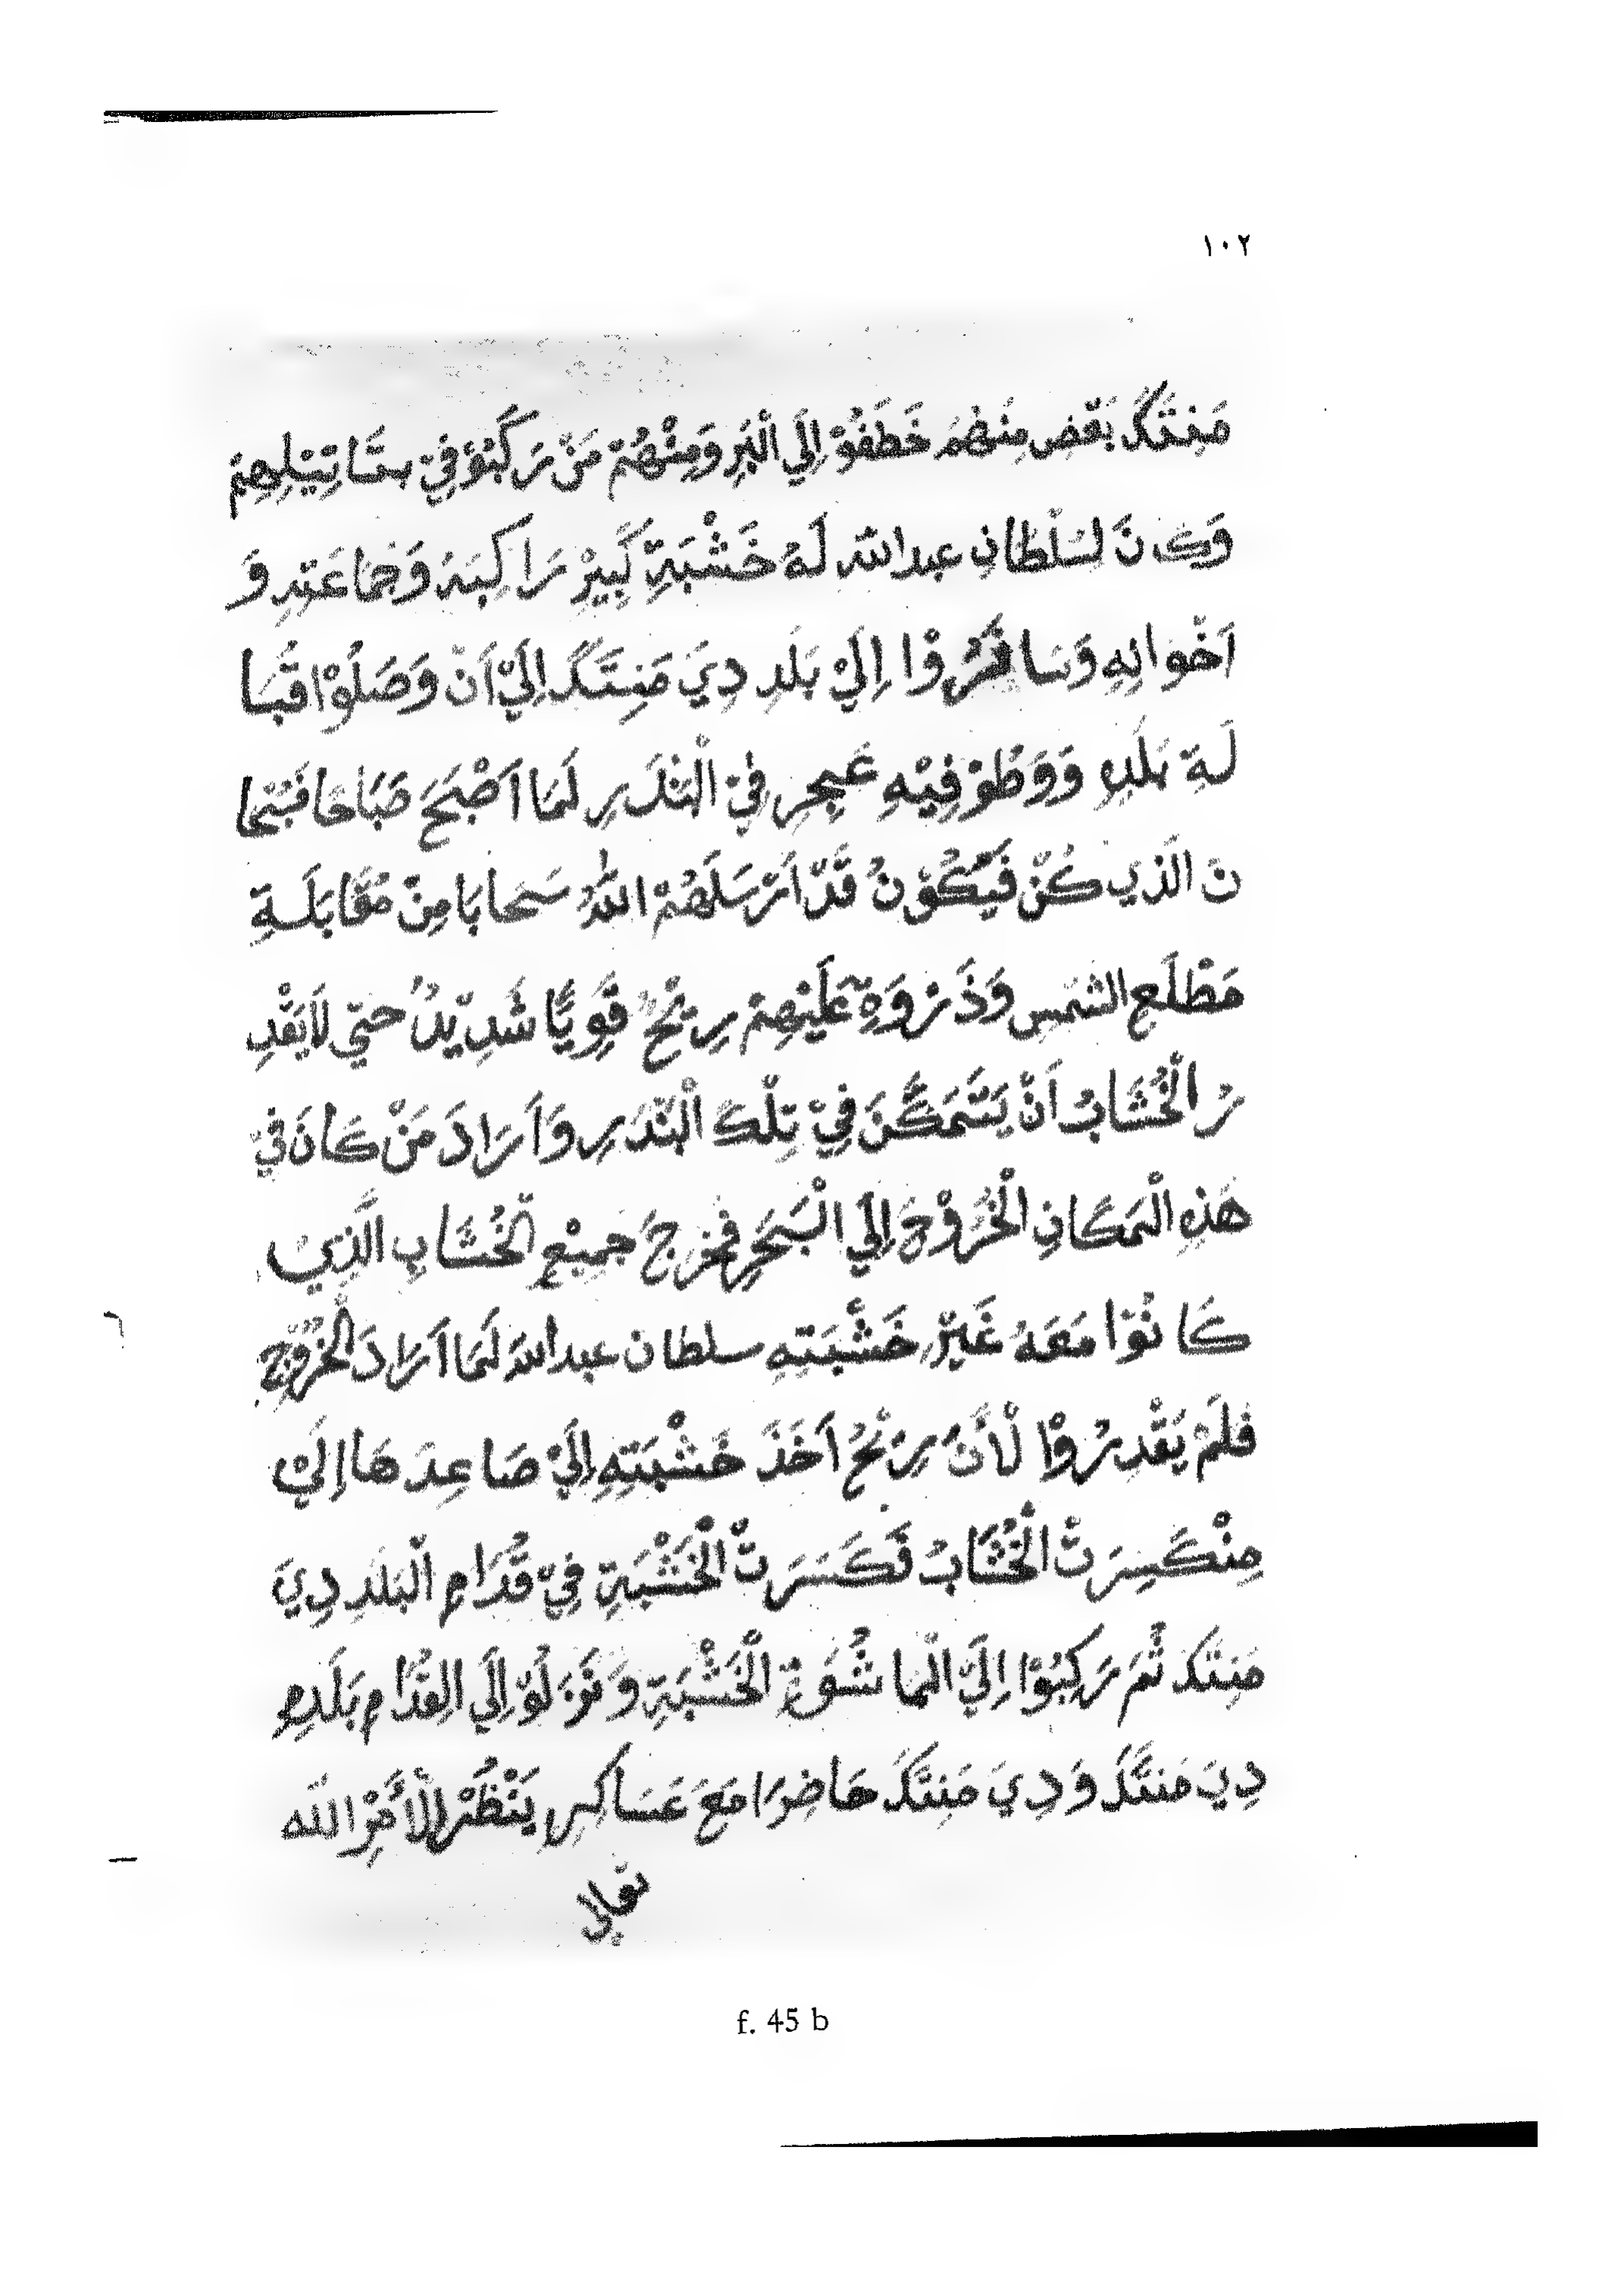 ١٠٢
مَنِتَكَ بَعْض مِنْهُمْ خَطَفُوْ اِلَي الْبَرِ وَمِنْهُمْ مَنْ رَكَبُوْ فِيْ بتَاتِيْلِهِمْ
وَكَانَ لسُلْطَانِ عبدالله لَهُ خَشْبَةِ كَبِيْرِ رَاكِبَهُ وَجَمَاعَتِهِ وَ
اَخْوَانِهِ وَسَافَرُوْا اِلَيْ بَلَدِ دِيَ مَنِتَكَ اِلَيْ اَنْ وَصَلُوْا قُبَا
لَةِ بَلَدِهِ وَوَطُوْ فِيْهِ عَبِجِرِ فِيْ الْبَنْدَرِ لَمَا اَصْبَحَ صَبَاحًا فَبَيْمَا
نَ الَّذِي كُنْ فَيَكُوْنُ قَدْ اَرْسَلَهُمْ اللهُ سَحَابَا مِنْ مُقَابَلَةِ
مَطْلَعِ الشمْسِ وَذَرْوَةِ عَلَيْهِمْ رِيْحُ قَوِيًّا شَدِيْدُ حتي لَا يَقْدِ
رُ الْخُشَابُ اَنْ يَتَمَكَّنَ فِيْ تِلْكَ الْبَنْدَرِ وَاَرَادَ مَنْ كَانَ فِيْ
هَذِهِ الْمَكَانِ الْخُرُوْجَ اِلَي الْبَحَرِ فخرجَ جَمِيْعِ الْخُشَابِ الَّذِيْ
كَانُوْا مَعَهُ غَيْرِ خَشْبَتِهِ سلطان عبدالله لَمَا اَرَادَ الْخُرُوْجِ
فَلَمْ يَقْدِرُوْا لْأَنَ رِيْحُ اَخَذَ خَشْبَتِهِ اِلَيْ صَاعِدَ هَا اِلَيْ
مِنْكَسِرَتْ الْخُشَابُ فَكَسَرَتْ الْخَشْبَةِ فِيْ قُدَامِ الْبَلَدِ دِيَ
مَنِتَكَ ثُمَ رَكِبُوْا اِلَيْ الْمَا شُوَةْ الْخَشْبَةِ وَنَزَلُوْ اِلَي الْقُدَامِ بَلَدِهِ
دِيَ مَنتَكَ وَدِيَ مَنِتَكَ حَاضِرَا مَعَ عَسَاكِرِ يَنْظُرْ لِلْأَمْرِ الله
تعالي
f. 45 b